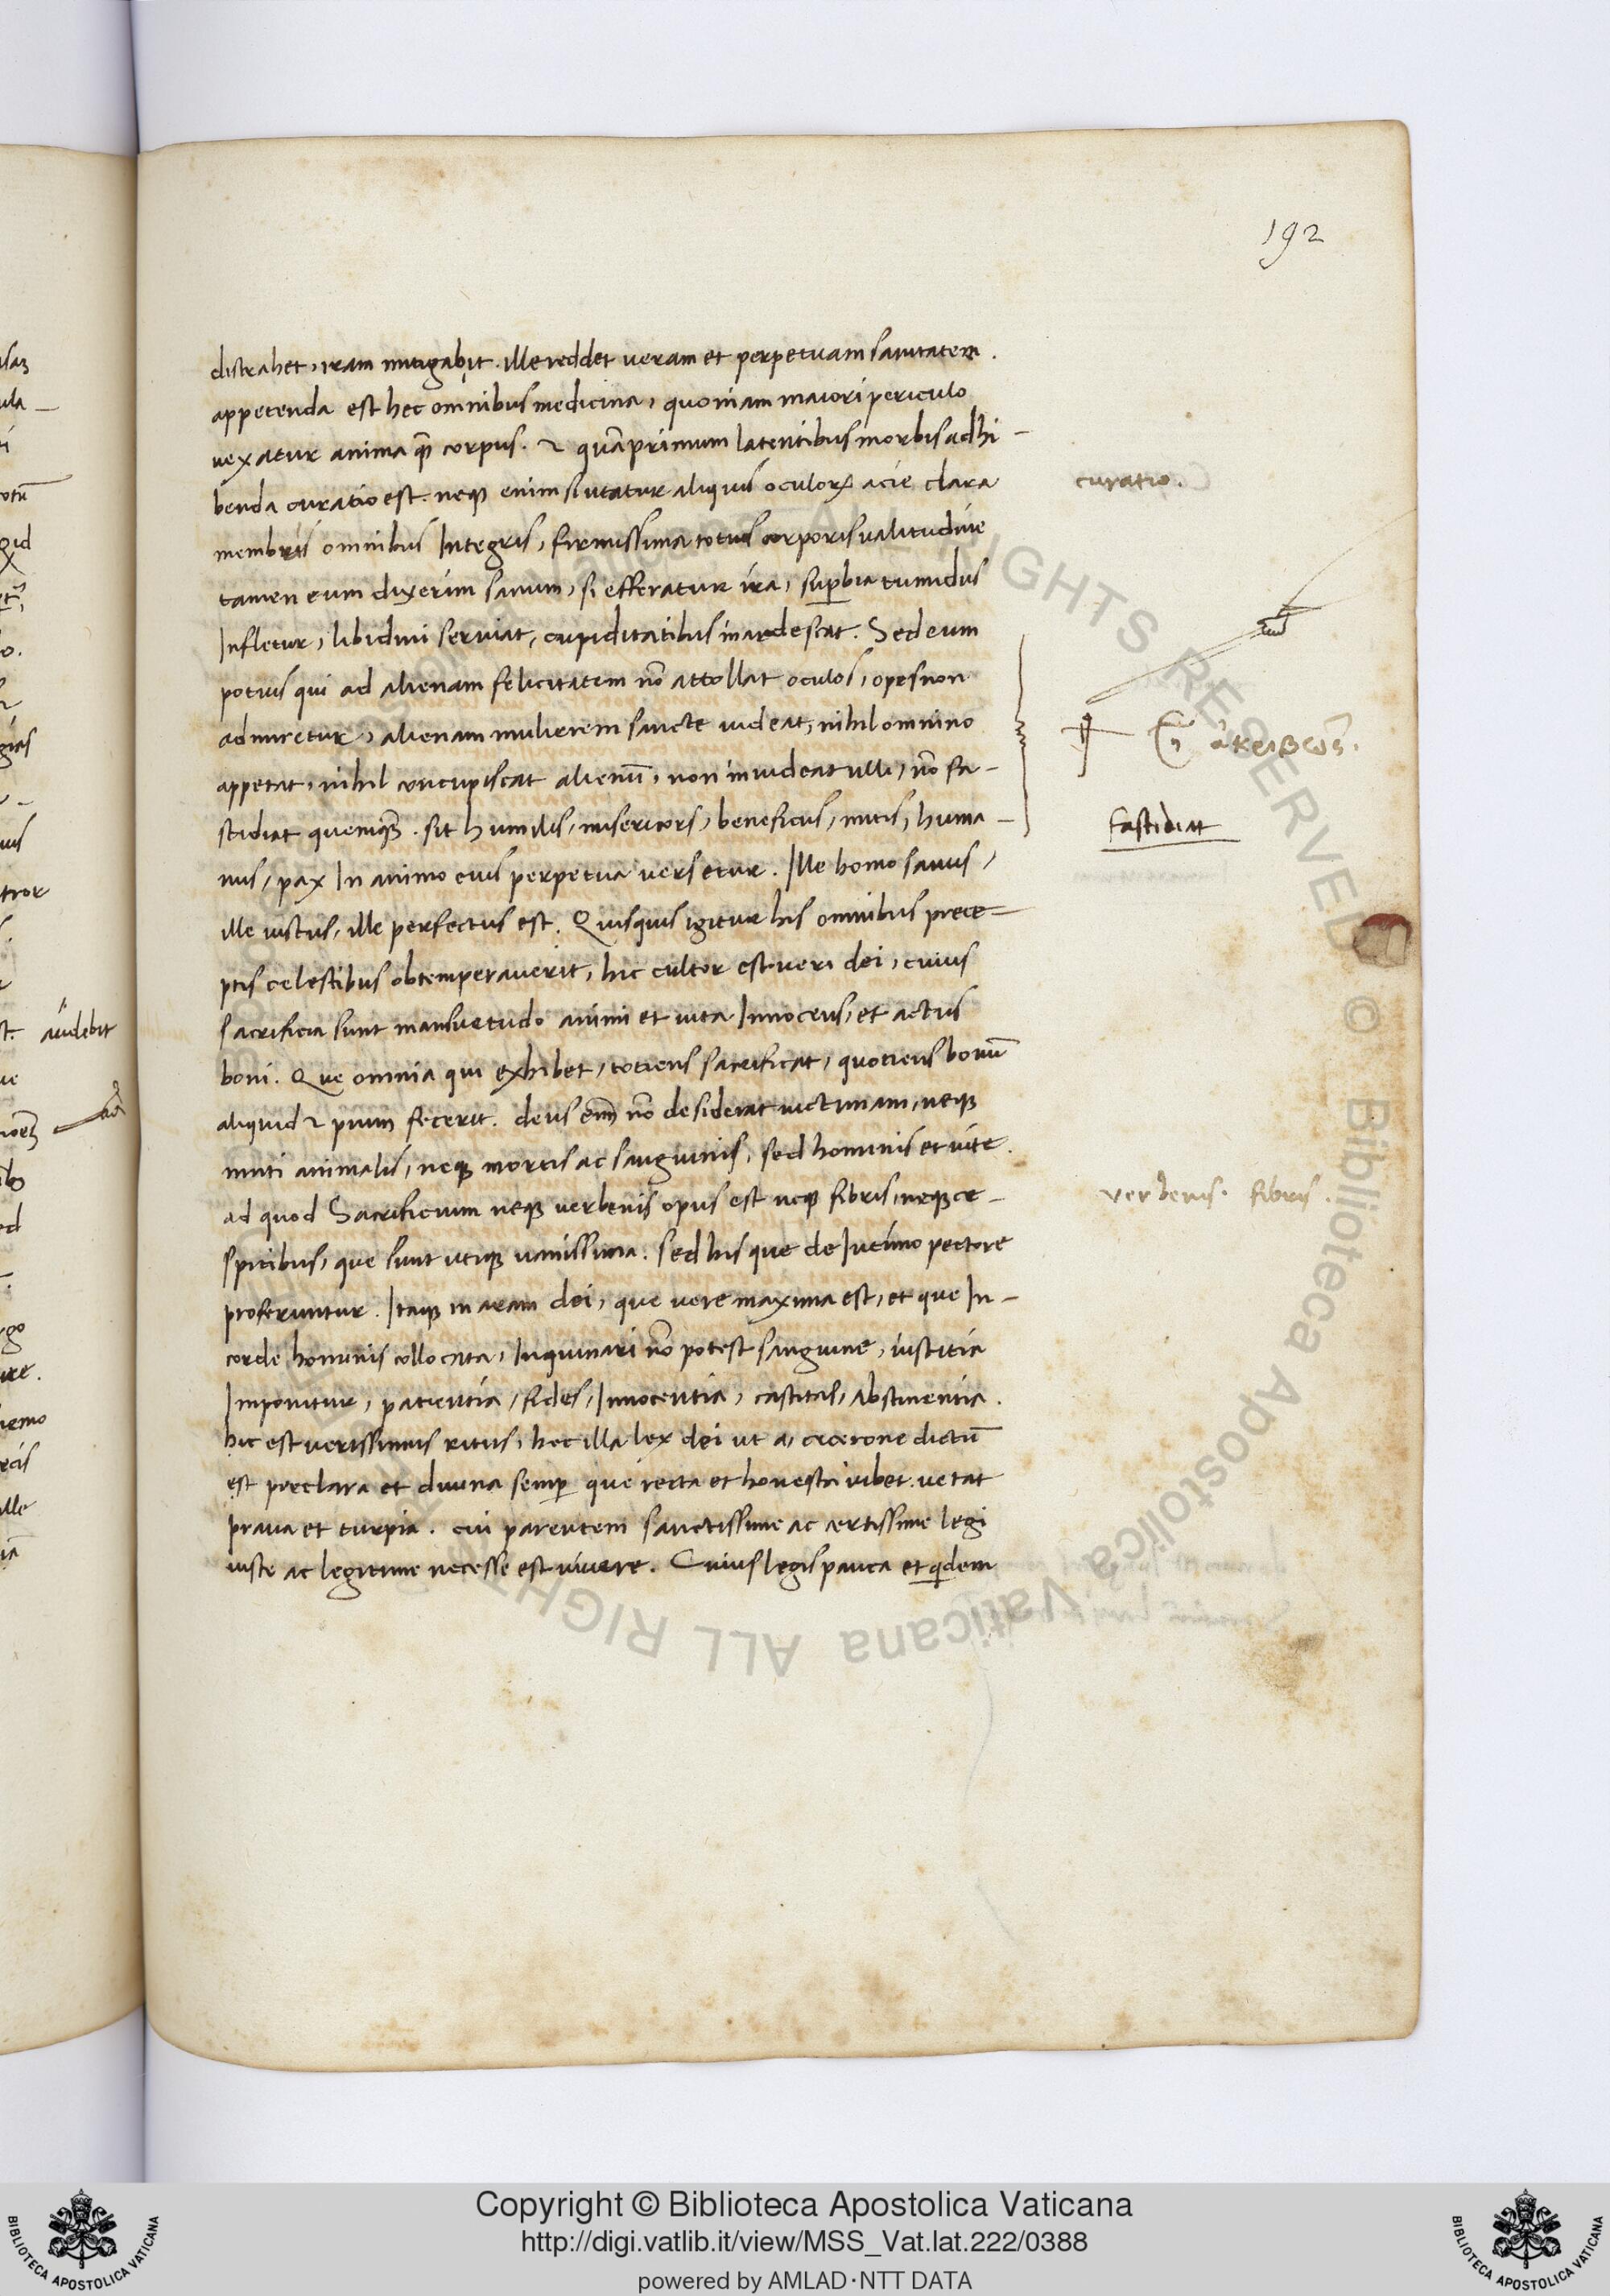 192
distrahet, iram mitigabit. ille reddet ueram et perpetuam sanitatem.
appetenda est hec omnibus medicina, quoniam maiori periculo
uexatur anima qᷓ corpus. ⁊ quāprimum latentibus morbis adhi-
benda curatio est. neqꝫ enim si utatur aliquis oculoꝝ acie clara
curatio.
membris omnibus Integris, firmissima totius corporis ualitudine
tamen eum dixerim sanum, si efferatur ira, suꝑbia tumidus
Infletur, libidini seruiat, cupiditatibus inardescat. Sed eum
potius qui ad alienam felicitatem nō attollat oculos, opes non
admiretur, alienam mulierem sancte uideat, nihil omnino
ἀκριβῶς.
appetat, nihil concupiscat alienū, non inuideat ulli, nō fa-
stidiat quemqᷓ. sit humilis, misericors, beneficus, mitis, huma-
fastidiat
nus, pax In animo eius perpetua uersetur. Ille homo sanus,
ille iustus, ille perfectus est. Quisquis igitur his omnibus prece-
ptis celestibus obtemperauerit, hic cultor est ueri dei, cuius
sacrificia sunt mansuetudo animi et uita Innocens, et actus
boni. Que omnia qui exhibet, totiens sacrificat, quotiens bonū
aliquid ⁊ pium fecerit. deus enī nō desiderat uictimam, neqꝫ
muti animalis, neqꝫ mortis ac sanguinis, sed hominis et uite.
ad quod Sacrificium neqꝫ uerbenis opus est neqꝫ fibris, neqꝫ ce-
verbenis. fibris.
spitibus, que sunt utiqꝫ uanissima. sed his que de Intimo pectore
proferuntur. Itaqꝫ in aram dei, que uere maxima est, et que In-
corde hominis collocata, Inquinari nō potest sanguine, iustitia
Imponitur, patientia, fides, Innocentia, castitas, abstinentia.
hic est uerissimus ritus, hec illa lex dei ut a, cicerone dictū
est preclara et diuina semꝑ que recta et honesta iubet. uetat
praua et turpia. cui parentem sanctissime ac certissime legi
iuste ac legitime necesse est uiuere. Cuius legis pauca et qͥdem
audebit
Copyright © Biblioteca Apostolica Vaticana
http://digi.vatlib.it/view/MSS_Vat.lat.222/0388
powered by AMLAD·NTT DATA
BIBLIOTECA APOSTOLICA VATICANA
BIBLIOTECA APOSTOLICA VATICANA